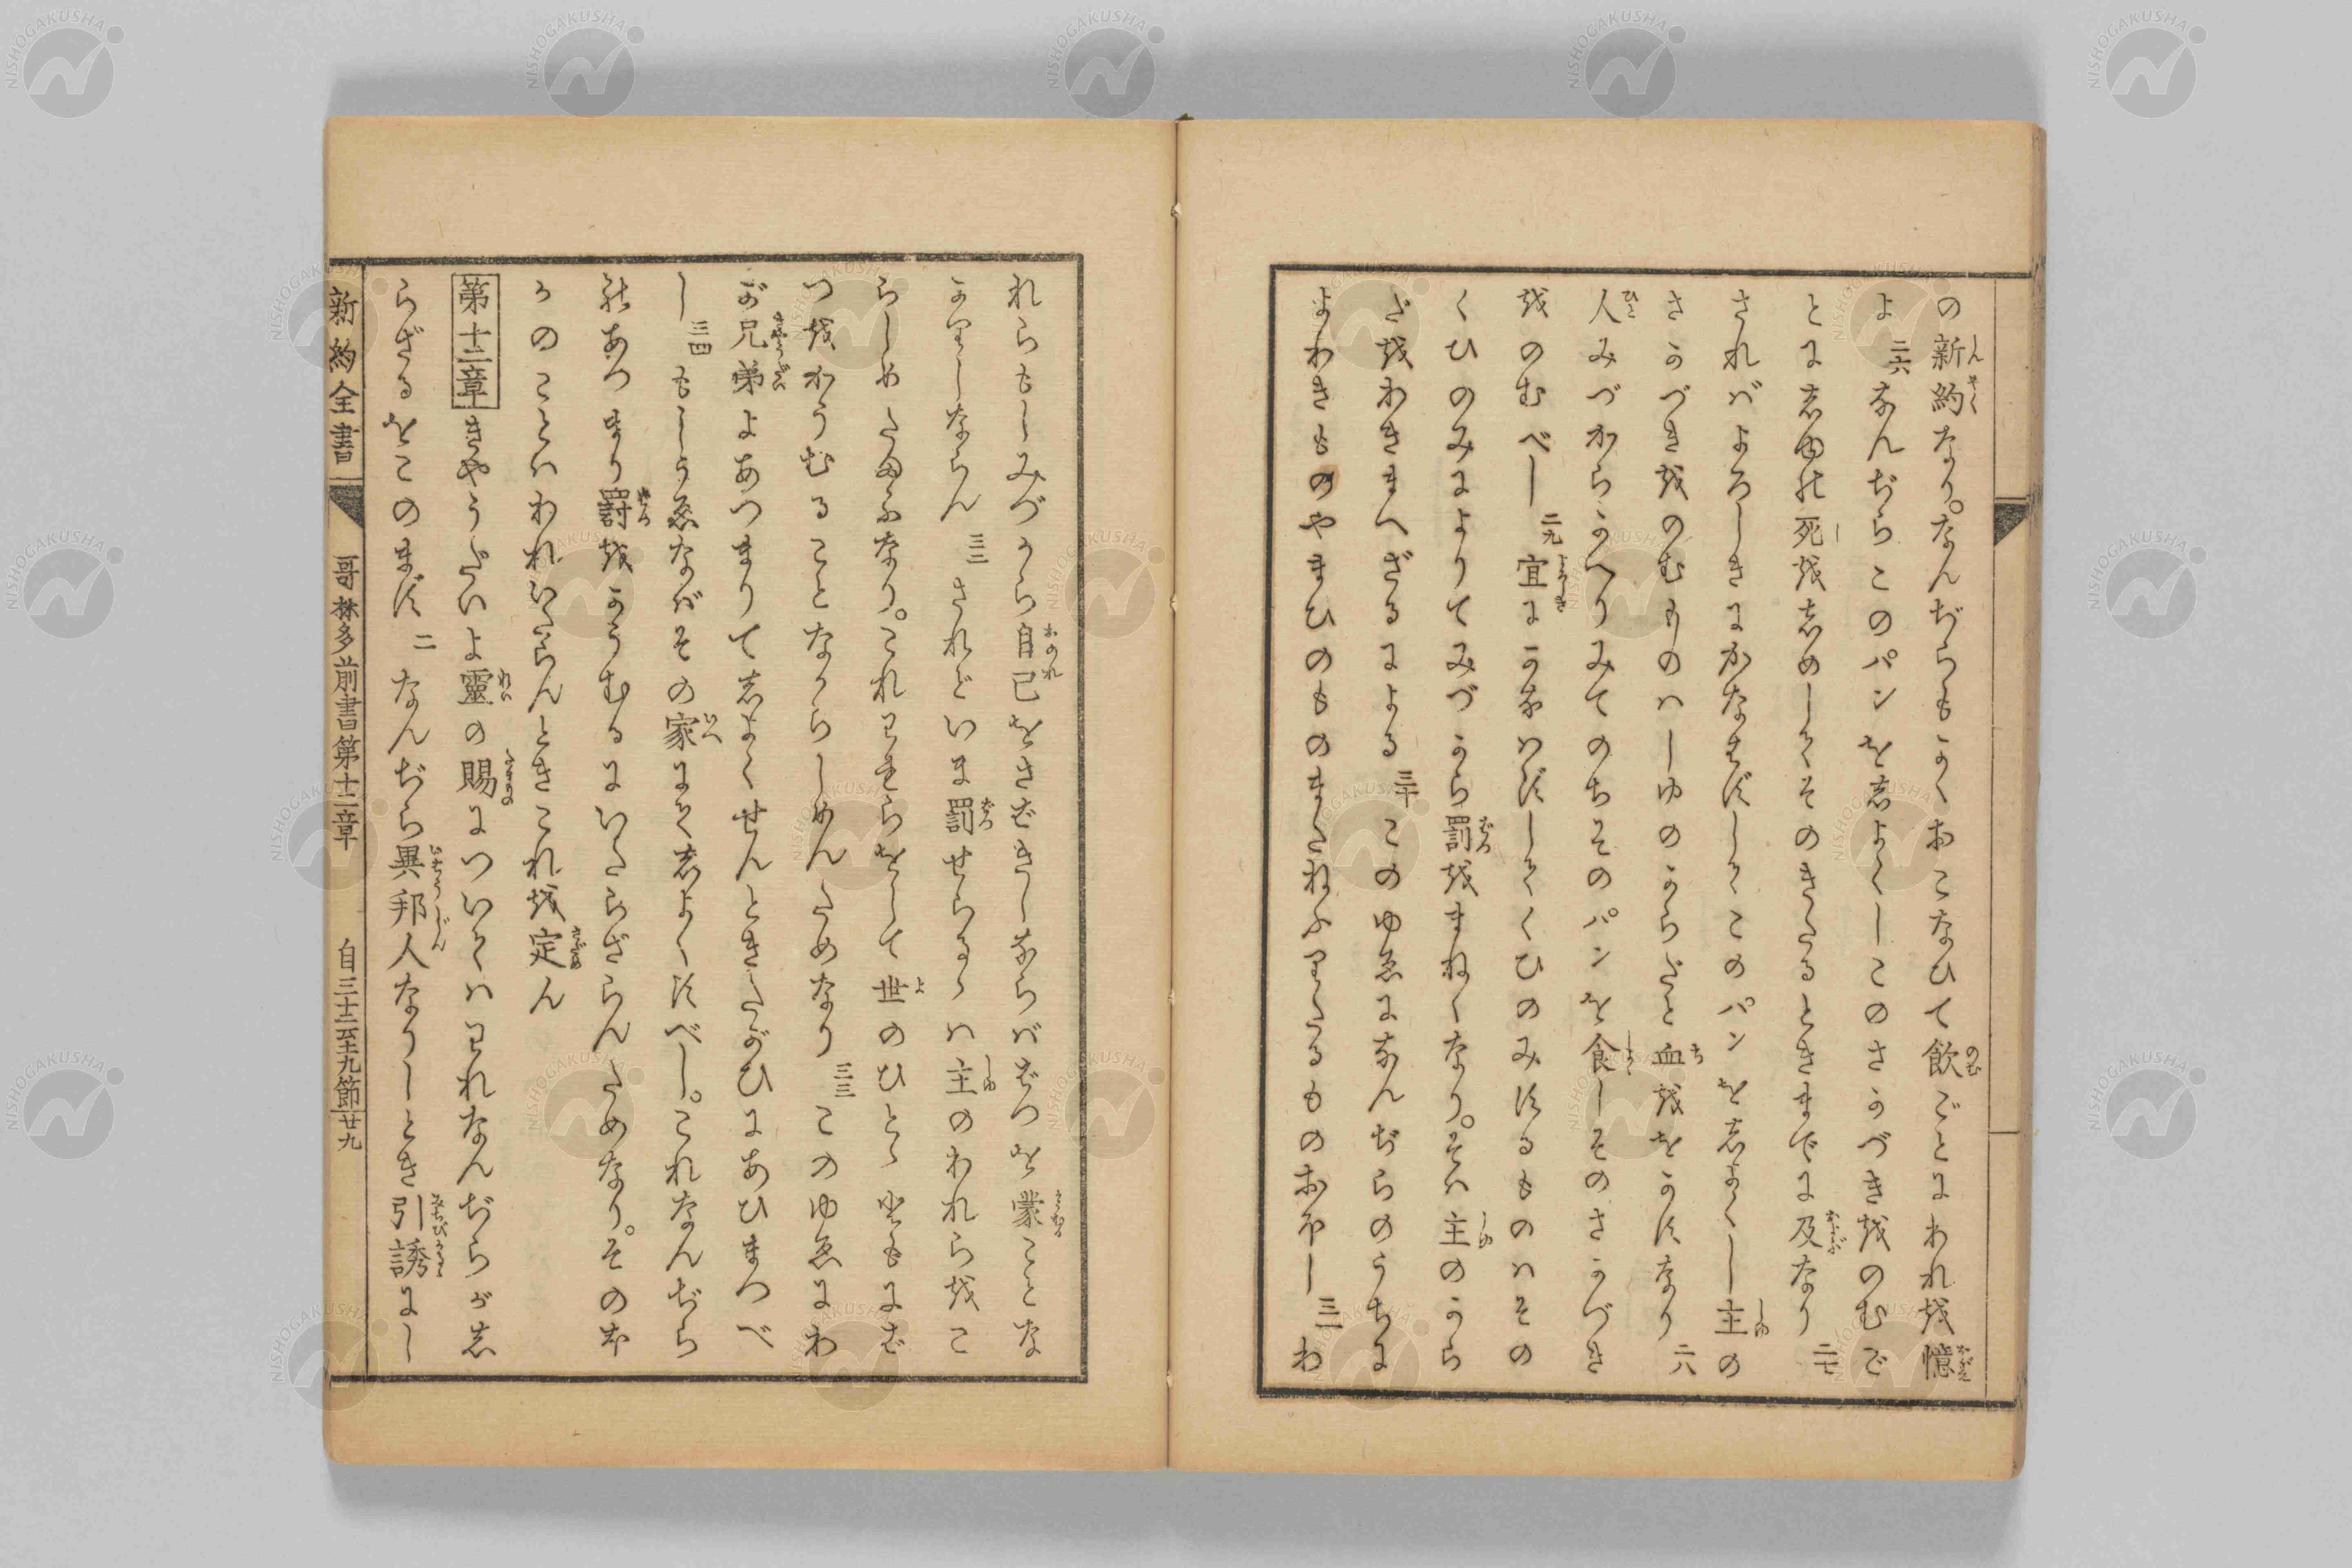 の新約なり。なんぢらもかくおこなひて飲ごとにわれ越憶
よ 二六 なんぢらこのパンを志よくしこのさかづき越のむで
とに志ゆの死越志めしてそのきたるときまでに及なり 二七
さればよろしきにかなはずしてこのパンを志よくし主の
さかづき越のむものハしゆのからだと血越をかすなり 二八
人みづからかへりみてのちそのパンを食しそのさかづき
越のむべし 二九 宜にかなはずしてくひのみするものハその
くひのみによりてみづから罰越まねくなり。そハ主のから
だ越わきまへざるによる 三十 このゆゑになんぢらのうちに
よわきものやまひのものまたねふりたるものおほし 三一 わ
れらもしみづから自己をさばきしならバばつを蒙ことな
かりしならん 三二 されどいま罰せらるゝハ主のわれら越こ
らしめたまふなり。これわれらをして世のひとゝともにば
つ越かうむることなからしめんためなり 三三 このゆゑにわ
が兄弟よあつまりて志よくせんときたがひにあひまつべ
し 三四 もしうゑなばその家にて志よくすべし。これなんぢら
のあつまり罰越かうむるにいたらざらんためなり。そのほ
かのことハわれいたらんときこれ越定ん
第十二章 きやうだいよ靈の賜についてハわれなんぢらが志
らざるをこのまず 二 なんぢら異邦人なりしとき引誘にし
新約全書 哥林多前書第十二章 自三十二至十九節 廿九